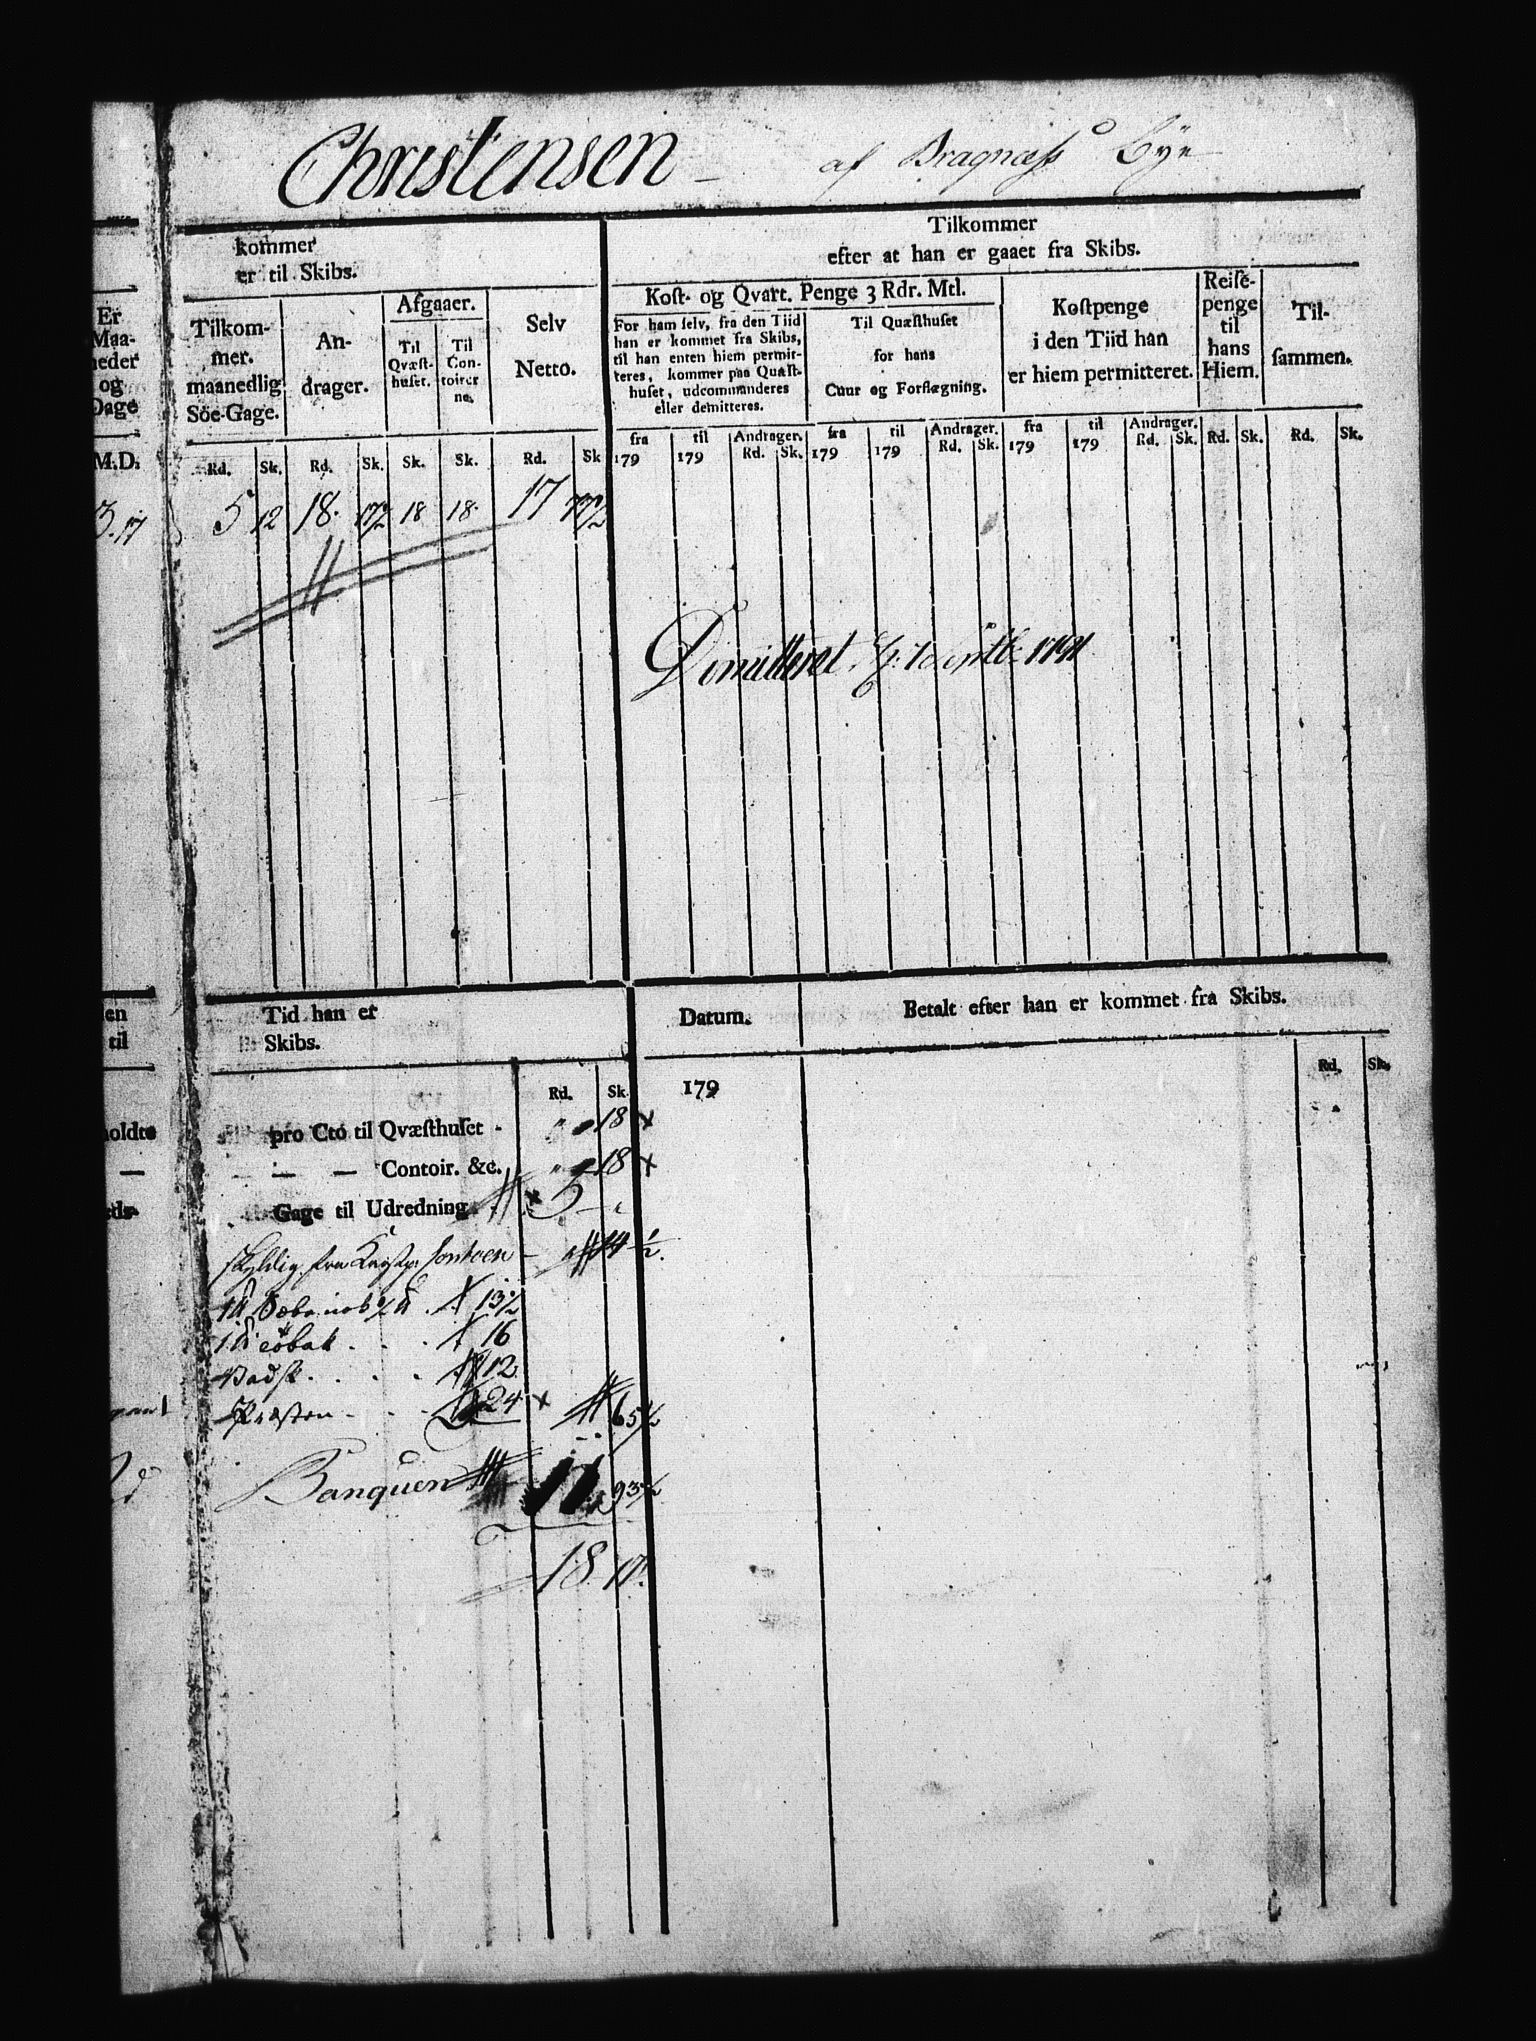 Christensen – af Bragnæss Bye
kommer
er til Skibs.
Tilkommer
efter at han er gaaet fra Skibs.
Er
Maa-
neder
og
Dage
M.D.
Tilkom-
mer.
maanedlig
Söe-Gage.
An-
drager.
Afgaaer.
Til
Qvæst-
huset.
Til
Con-
toirer
ne.
Selv
Netto.
Kost- og Qvart. Penge 3 Rdr. Mtl.
For ham selv, fra den Tiid
han er kommet fra Skibs,
til han enten hiem permit-
teres, kommer paa Quæst-
huset, udcommanderes
eller demitteres.
Til Quæsthuset
for hans
Cuur og Forflægning.
Kostpenge
i den Tiid han
er hiem permitteret.
Reise-
penge
til
hans
Hiem.
Til-
sammen.
Rd. Sk. Rd. Sk. Sk. Sk. Rd. Sk
fra 179 til 179 Andrager. Rd. Sk. fra 179 til 179 Andrager. Rd. Sk. fra 179 til 179 Andrager. Rd. Sk. Rd. Sk. Rd. Sk.
3. 17 5 12 18. 17½ 18 18. 17 77½
Dimitteret
1791
en
til
Tid han er
Skibs.
Datum.
Betalt efter han er kommet fra Skibs.
Rd. Sk. 179 Rd. Sk.
holdte pro Cto til Qvæsthuset - 18 x
— — — Contoir. &c. 18 x
Gage til Udredning x 5
skyldig fra 14½
13½
16
12
24 x 65½
Banquen 11 93½
18. 17.